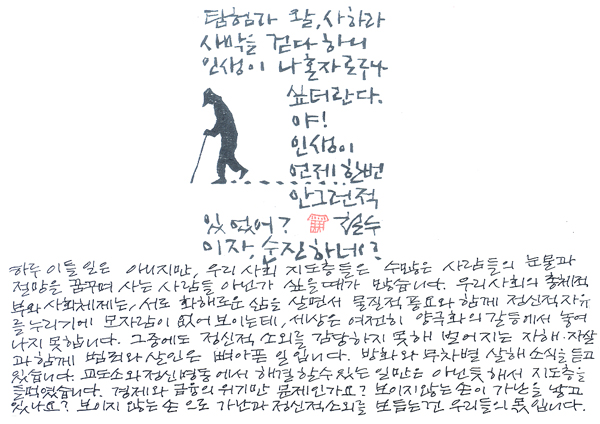 탐험가 왈, 사하라
사막을 걷다 하의
인생이 나 혼자로구나
싶더란다.
야!
인생이
언제 한번
안그런적
있었어? 철수
이자, 순진하네?
하루 이틀 일은 아니지만, 우리사회 지도층들은 수많은 사람들의 눈물과
절망을 꿈꾸며 사는 사람들 아닌가 싶을때가 많습니다. 우리사회의 총체적
부와 사회체제는, 서로 화해로운 삶을 살면서 물질적 풍요와 함께 정신적 자유
를 누리기에 모자람이 없어 보이는데, 세상은 여전히 양극화의 갈등에서 놓여
나지 못합니다. 그중에도 정신적 소외를 감당하지 못해 벌어지는 자해·자살
과 함께 범죄와 살인은 뼈아픈 일 입니다. 방화와 무차별 살해 소식을 듣고
있습니다. 교도소와 정신병동에서 해결할수있는 일만은 아닌듯해서 지도층을
들먹였습니다. 경제와 금융의 위기만 문제인가요? 보이지 않는 손이 가난을 낳고
있나요? 보이지 않는 손 으로 가난과 정신적 소외를 보듬는건 우리들의 몫입니다.